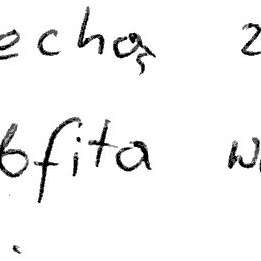 echą 2
obfita w